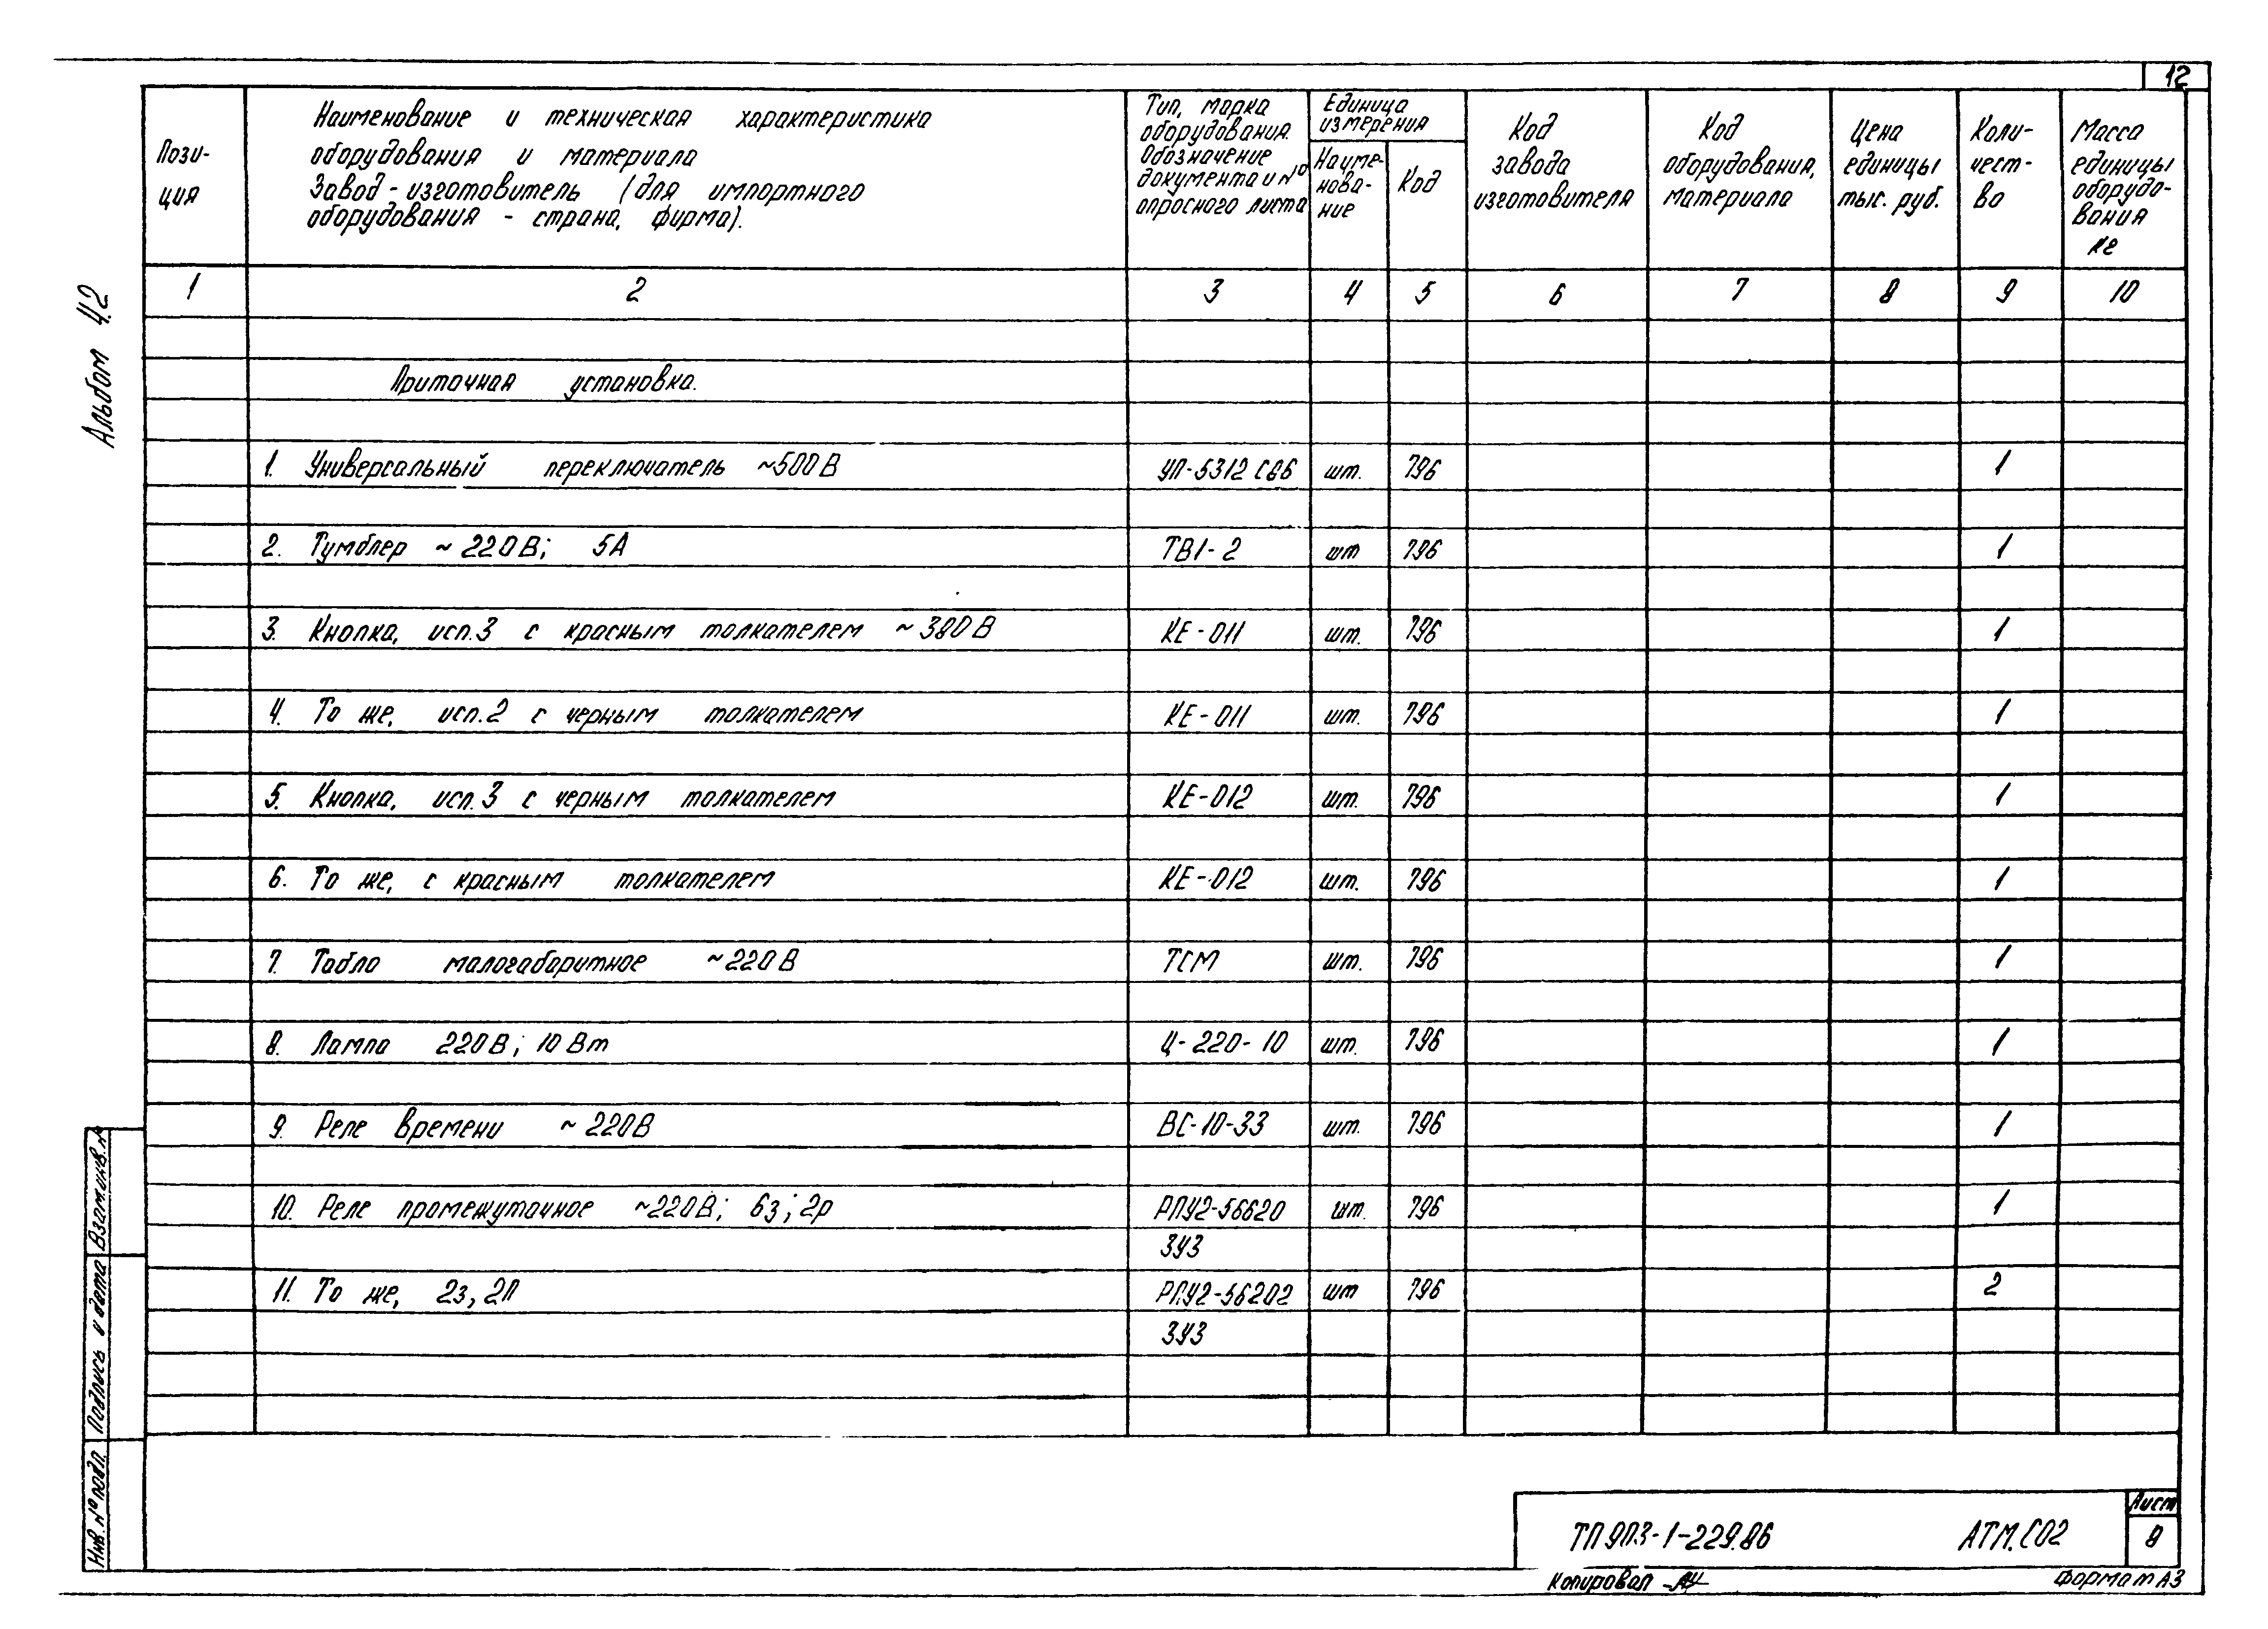 12
Альбом 4.2
Пози-
ция
Наименование и техническая характеристика
оборудования и материала
Завод-изготовитель (для импортного
оборудования - страна, фирма).
Тип, марка
оборудования.
Обозначение
документа и №
опросного листа
Единица
измерения
Наиме-
нова-
ние
Код
Код
завода
изготовителя
Код
оборудования,
материала
Цена
единицы
тыс. руб.
Коли-
чест-
во
Масса
единицы
оборудо-
вания
кг
1 2 3 4 5 6 7 8 9 10
Приточная установка.
1. Универсальный переключатель ~500В УП-5312 С86 шт. 796 1
2. Тумблер ~220В; 5А ТВ1-2 шт 796 1
3. Кнопка, исп.3 с красным толкателем ~380В КЕ-011 шт. 796 1
4. То же, исп.2 с черным толкателем КЕ-011 шт. 796 1
5. Кнопка, исп.3 с черным толкателем КЕ-012 шт. 796 1
6. То же, с красным толкателем КЕ-012 шт. 796 1
7. Табло малогабаритное ~220В ТСМ шт. 796 1
8. Лампа 220В; 10Вт Ц-220-10 шт. 796 1
9. Реле времени ~220В ВС-10-33 шт. 796 1
10. Реле промежуточное ~220В; 6з; 2р РПУ2-56620 шт. 796 1
3У3
11. То же, 2з, 2П РПУ2-56202 шт 796 2
3У3
Взам.инв.№
Подпись и дата
Инв.№ подл.
ТП 903-1-229.86 АТМ.СО2
Лист
8
Копировал
Формат А3